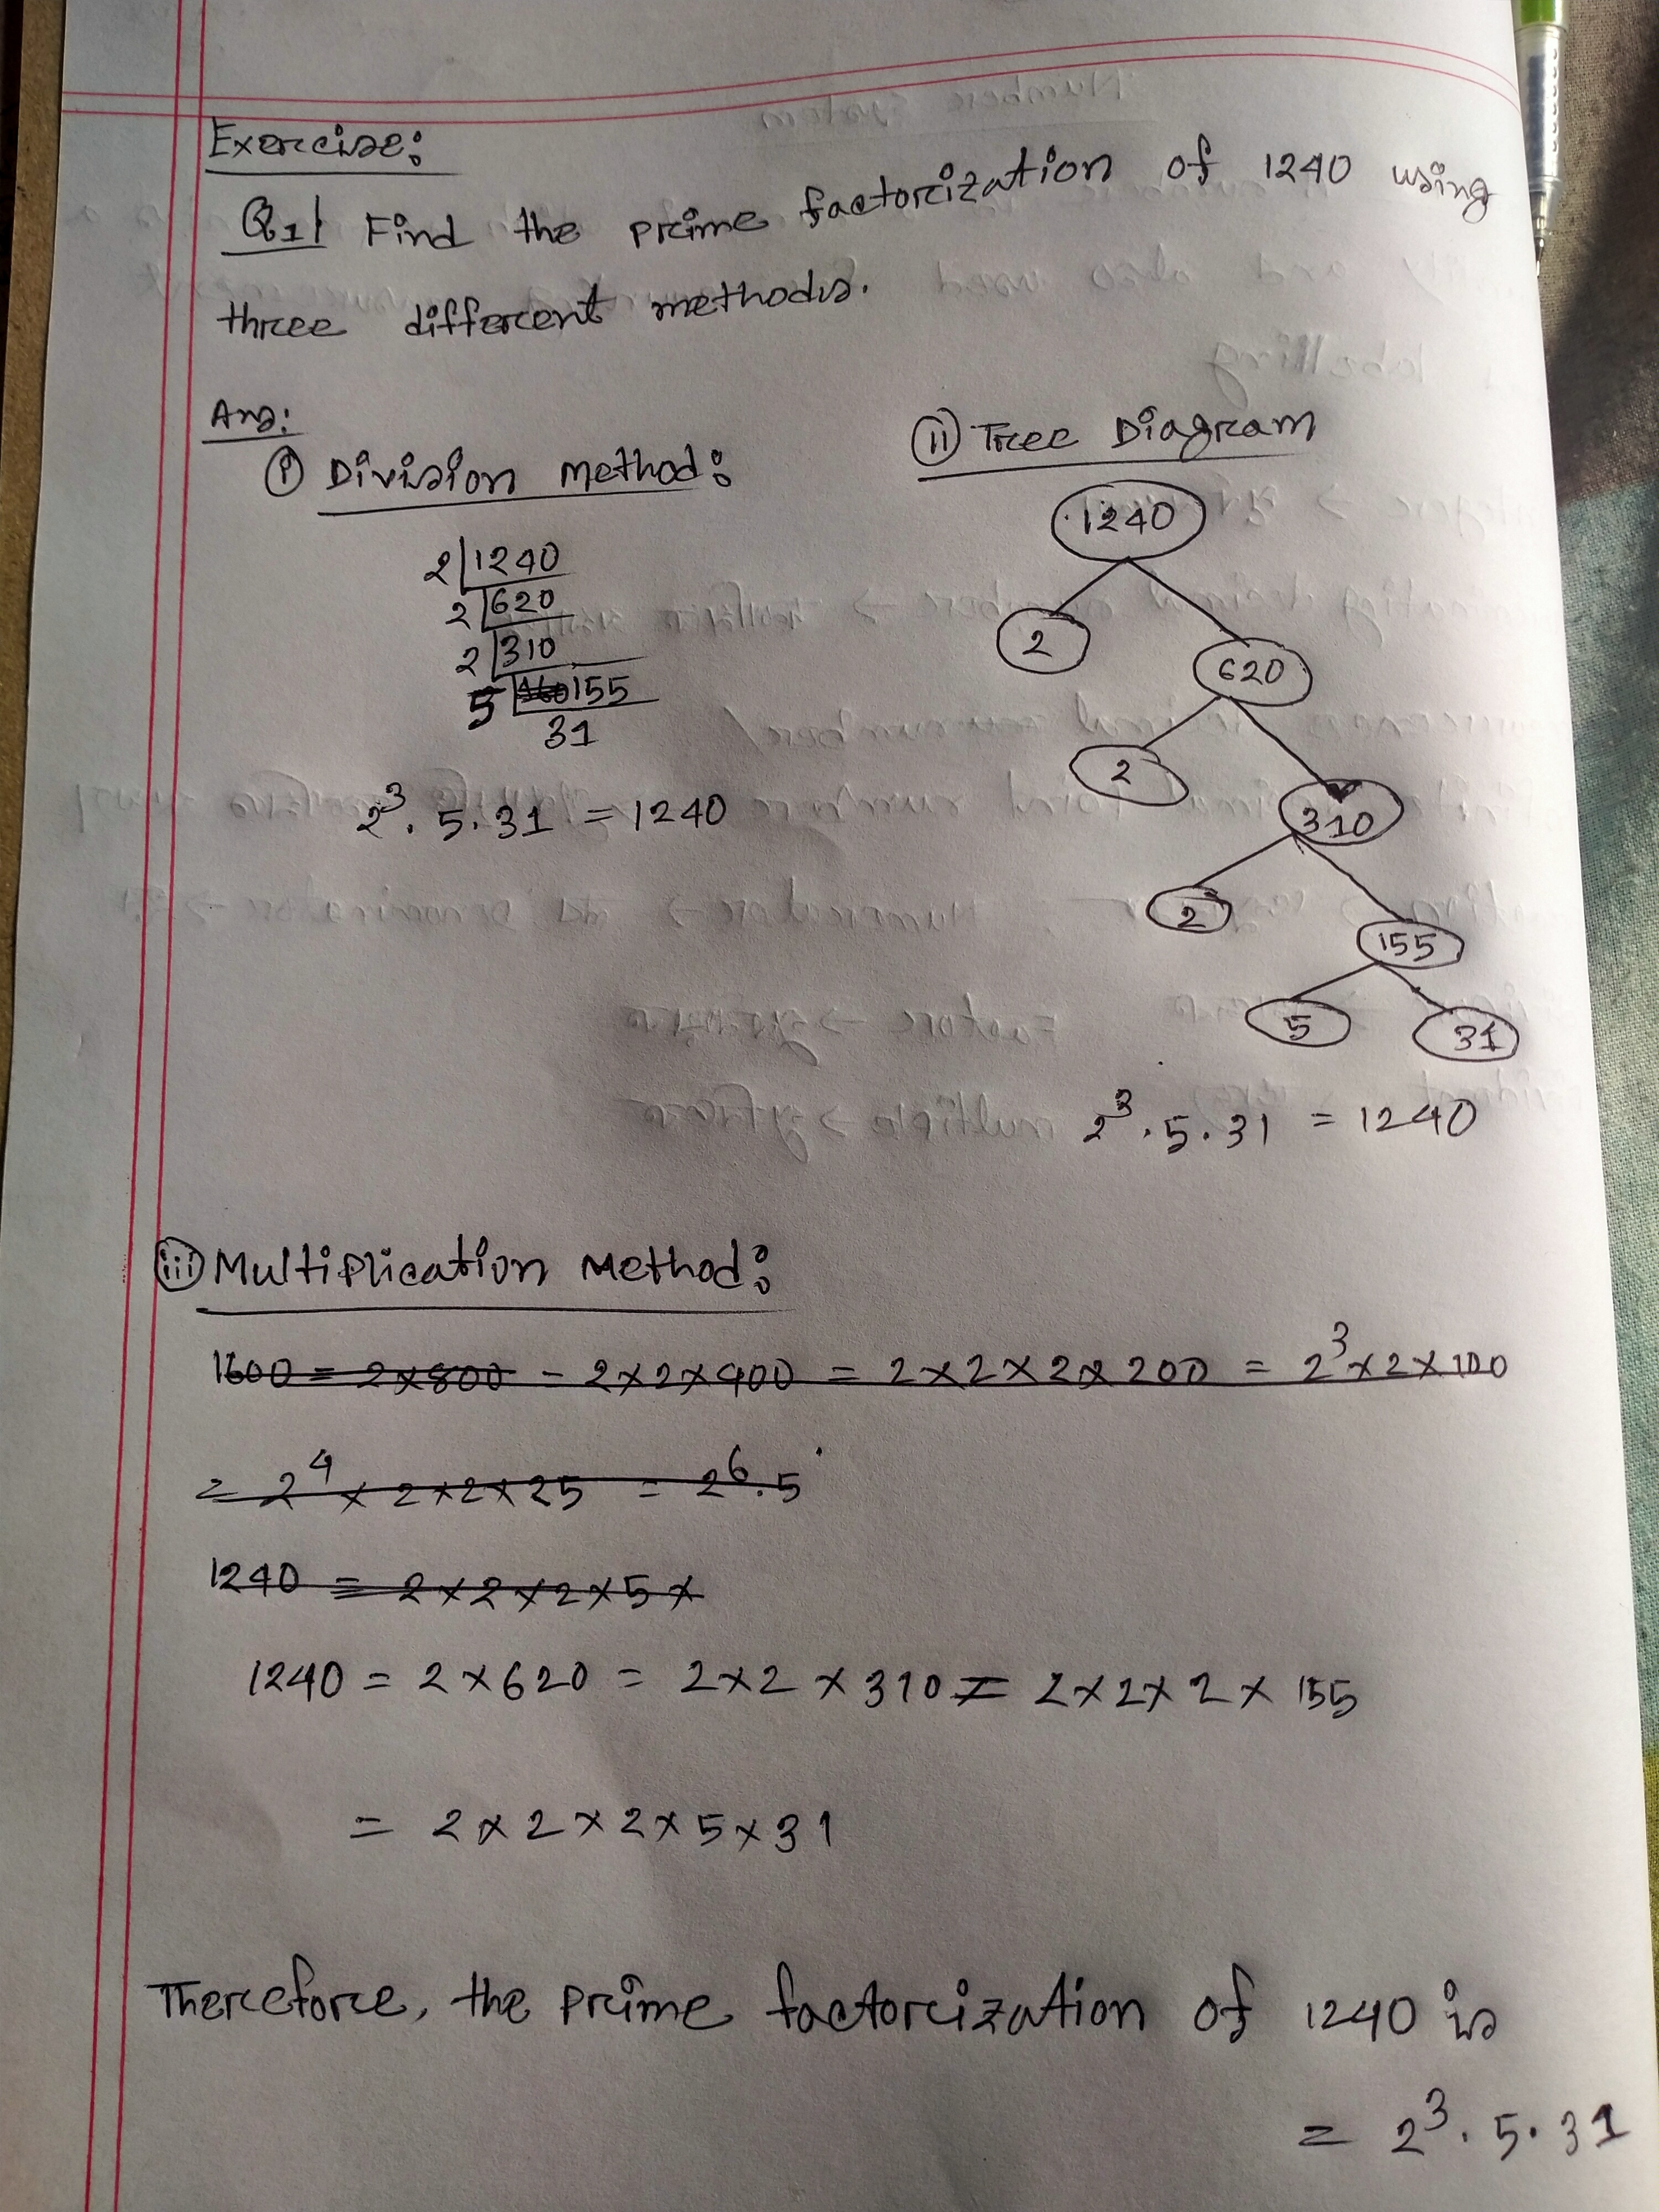 Exercise:
Q1| Find the prime factorization of 1240 using
three different methods.
Ans:
(i) Division Method:
2|1240
2|620
2|310
5|155
31
2³. 5. 31 = 1240
(ii) Tree Diagram
1240
2
620
2
310
2
155
5
31
2³. 5. 31 = 1240
(iii) Multiplication Method:
1600 = 2×800 = 2×2×400 = 2×2×2×200 = 2³×2×100
= 2⁴ × 2×2×25 = 2⁶.5
1240 = 2×2×2×5×
1240 = 2×620 = 2×2×310 = 2×2×2×155
= 2×2×2×5×31
Therefore, the prime factorization of 1240 is
= 2³. 5. 31